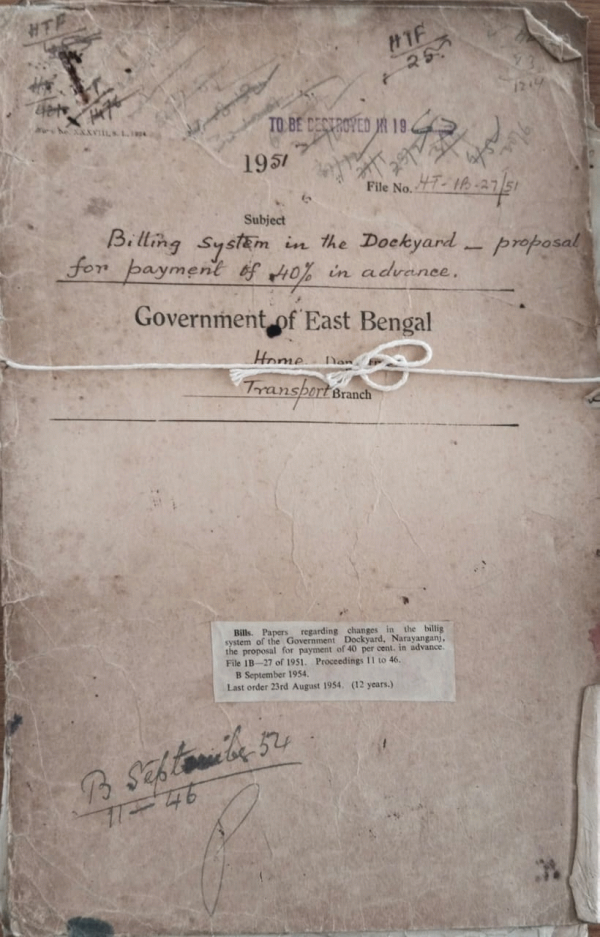 HTF
HTF
25
TO BE DESTROYED IN 19
1951
File No. HT-1B-27/51
Subject
Billing system in the Dockyard — proposal
for payment of 40% in advance.
Government of East Bengal
Home
Transport Branch
Bills. Papers regarding changes in the billig
system of the Government Dockyard, Narayanganj,
the proposal for payment of 40 per cent. in advance.
File 1B—27 of 1951. Proceedings 11 to 46.
B September 1954.
Last order 23rd August 1954. (12 years.)
B September 54
11 — 46